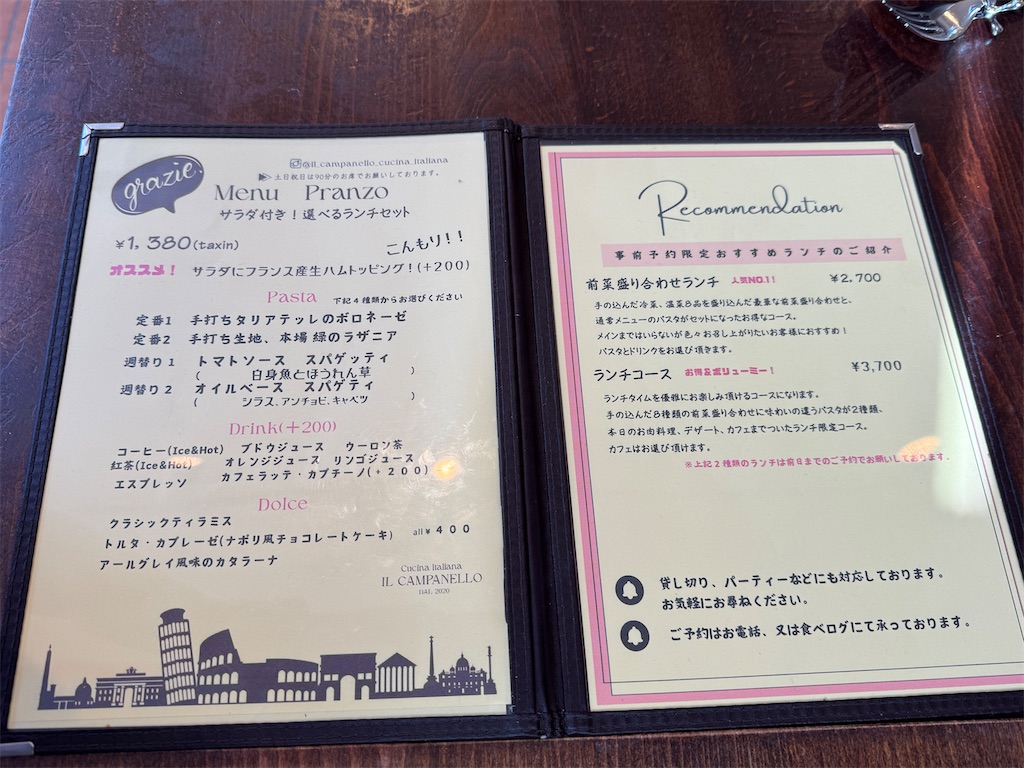 grazie.
@il_campanello_cucina_italiana
土日祝日は90分のお席でお願いしております。
Menu Pranzo
サラダ付き！選べるランチセット
¥1,380(taxin)
こんもり！！
オススメ！ サラダにフランス産生ハムトッピング！(+200)
Pasta 下記4種類からお選びください
定番1 手打ちタリアテッレのボロネーゼ
定番2 手打ち生地、本場 緑のラザニア
週替り1 トマトソース スパゲッティ
( 白身魚とほうれん草 )
週替り2 オイルベース スパゲティ
( シラス、アンチョビ、キャベツ )
Drink(+200)
コーヒー(Ice&Hot) ブドウジュース ウーロン茶
紅茶(Ice&Hot) オレンジジュース リンゴジュース
エスプレッソ カフェラッテ・カプチーノ(+200)
Dolce
クラシックティラミス
トルタ・カプレーゼ(ナポリ風チョコレートケーキ) all¥400
アールグレイ風味のカタラーナ
Cucina Italiana
IL CAMPANELLO
DAL 2020
Recommendation
事前予約限定おすすめランチのご紹介
前菜盛り合わせランチ 人気NO.1！ ¥2,700
手の込んだ冷菜、温菜8品を盛り込んだ豪華な前菜盛り合わせと、
通常メニューのパスタがセットになったお得なコース。
メインまではいらないが色々お召し上がりたいお客様におすすめ！
パスタとドリンクをお選び頂きます。
ランチコース お得&ボリューミー！ ¥3,700
ランチタイムを優雅にお楽しみ頂けるコースになります。
手の込んだ8種類の前菜盛り合わせに味わいの違うパスタが2種類、
本日のお肉料理、デザート、カフェまでついたランチ限定コース。
カフェはお選び頂けます。
※上記2種類のランチは前日までのご予約でお願いしております。
貸し切り、パーティーなどにも対応しております。
お気軽にお尋ねください。
ご予約はお電話、又は食べログにて承っております。